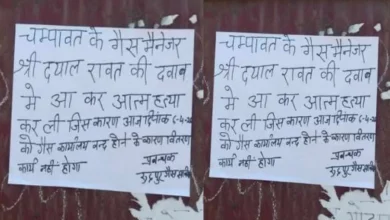 चम्पावत के गैस मैनेजर
श्री दयाल रावत की दवाब
मे आ कर आत्महत्या
कर ली जिस कारण आज दिनांक
को गैस कार्यालय बन्द होने के कारण वितरण
कार्य नही होगा
प्रबन्धक
गैस
चम्पावत के गैस मैनेजर
श्री दयाल रावत की दवाब
मे आ कर आत्महत्या
कर ली जिस कारण आज दिनांक
को गैस कार्यालय बन्द होने के कारण वितरण
कार्य नही होगा
प्रबन्धक
गैस